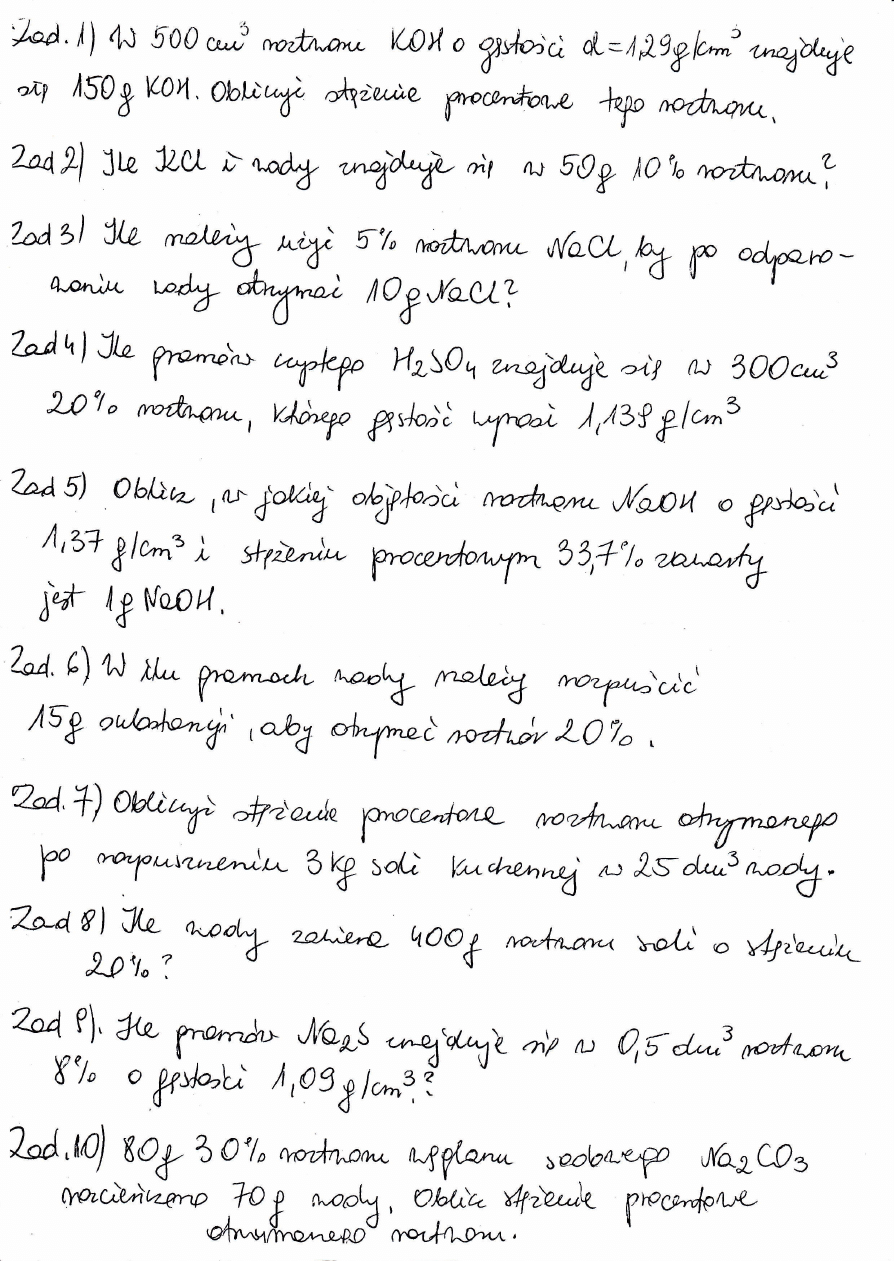 Zad. 1) W 500 cm³ roztworu KOH o gęstości d = 1,29 g/cm³ znajduje
się 150 g KOH. Obliczyć stężenie procentowe tego roztworu.
Zad 2) Ile KCl i wody znajduje się w 50 g 10% roztworu?
Zad 3) Ile należy użyć 5% roztworu NaCl, by po odparo-
waniu wody otrzymać 10 g NaCl?
Zad 4) Ile gramów czystego H₂SO₄ znajduje się w 300 cm³
20% roztworu, którego gęstość wynosi 1,139 g/cm³
Zad 5) Oblicz, w jakiej objętości roztworu NaOH o gęstości
1,37 g/cm³ i stężeniu procentowym 33,7% zawarty
jest 1g NaOH.
Zad. 6) W ilu gramach wody należy rozpuścić
15g substancji, aby otrzymać roztwór 20%.
Zad. 7) Obliczyć stężenie procentowe roztworu otrzymanego
po rozpuszczeniu 3 kg soli kuchennej w 25 dm³ wody.
Zad 8) Ile wody zawiera 400g roztworu soli o stężeniu
20%?
Zad 9). Ile gramów Na₂S znajduje się w 0,5 dm³ roztworu
8% o gęstości 1,09 g/cm³?
Zad. 10) 80g 30% roztworu węglanu sodowego Na₂CO₃
rozcieńczono 70 g wody. Oblicz stężenie procentowe
otrzymanego roztworu.